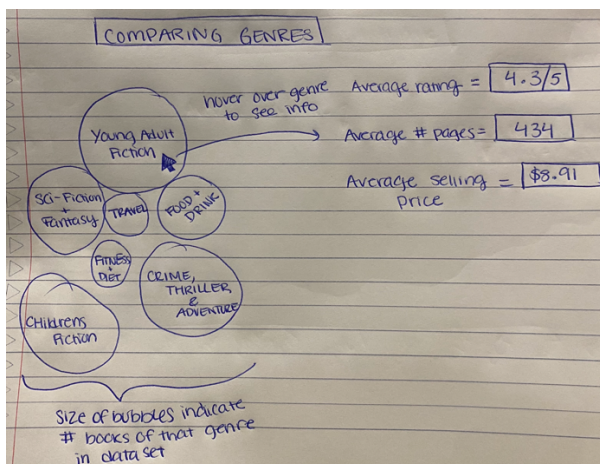 COMPARING GENRES
hover over genre
to see info
Average rating = 4.3/5
Average # pages = 434
Average selling = $8.91
price
Young Adult
Fiction
Sci-Fiction
+
Fantasy
TRAVEL
FOOD +
DRINK
FITNESS
+
DIET
CRIME,
THRILLER
&
ADVENTURE
CHildrens
Fiction
Size of bubbles indicate
# books of that genre
in dataset